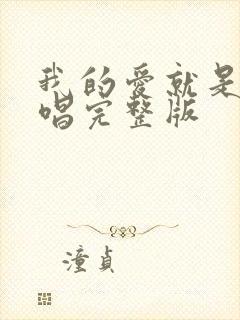 我的爱就是
唱完整版
潼貞